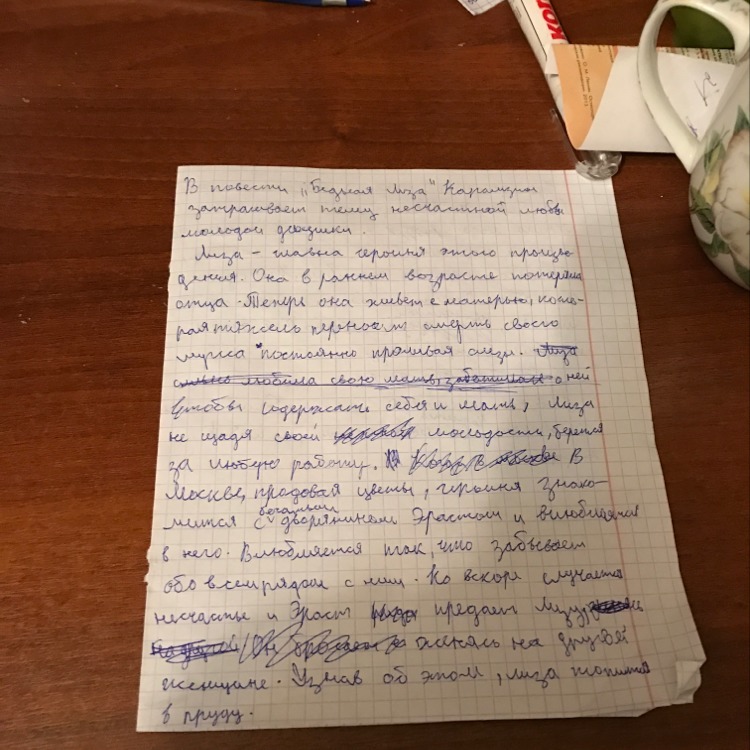 КОП
В повести „Бедная Лиза" Карамзин
затрагивает тему несчастной любви
молодой девушки.
Лиза - главна героиня этого произве-
дения. Она в раннем возрасте потеряла
отца. Теперь она живет с матерью, кото-
рая тяжело переносит смерть своего
мужа постоянно проливая слезы. Лиза
сильно любила свою мать, заботилась о ней
Чтобы содержать себя и мать, Лиза
не щадя своей молодости, берется
за любую работу. В
Москве, продовая цветы, героиня знако-
мится с богатым дворянином Эрастом и влюбляется
в него. Влюбляется так, что забывает
обо всем рядом с ним. Но вскоре случается
несчастье и Эраст предает Лизу,
женясь на другой
женщине. Узнав об этом, Лиза топится
в пруду.